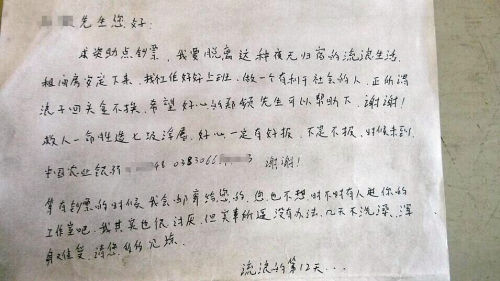 先生您好:
求资助点钞票,我要脱离这种夜无归宿的流浪生活,
租间房安定下来,找工作好好上班,做一个有利于社会的人,正所谓
浪子回头金不换,希望好心的 先生可以帮助下,谢谢!
救人一命胜造七级浮屠,好心一定有好报,不是不报,时候未到
中国农业银行 48 0383066 谢谢!
等有钞票的时候我会 寄给您的,您也不想时不时有人进你的
工作室吧,我其实也很讨厌,但实事所逼没有办法,几天不洗澡,浑
身 臭,请您
流浪的第12天...